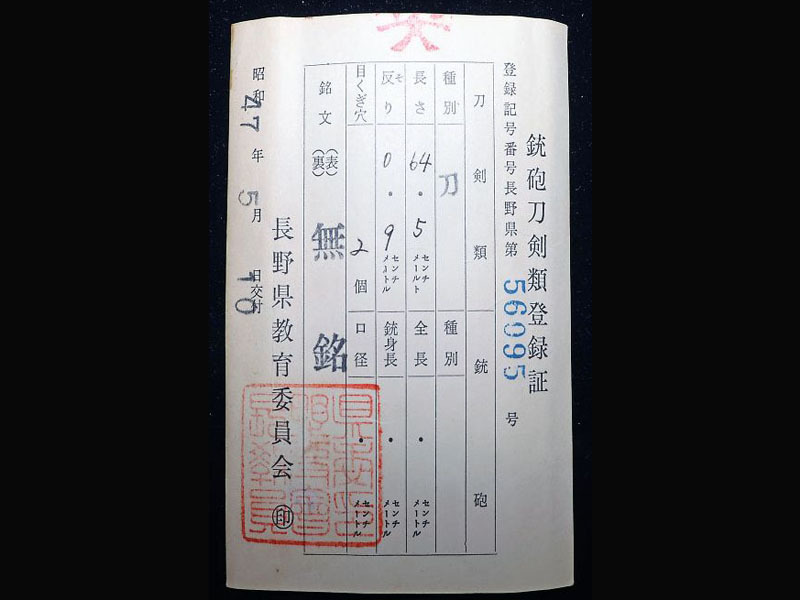 銃砲刀剣類登録証
登録記号番号長野県第56995号
刀剣類 銃砲
種別 刀 種別
長さ 64.5センチメートル 全長 ・センチメートル
反り ソ 0.9センチメートル 銃身長 ・センチメートル
目くぎ穴 2個 口径 ・センチメートル
銘文 (表) (裏) 無銘
長野県教育委員会 ㊞
昭和47年5月10日交付